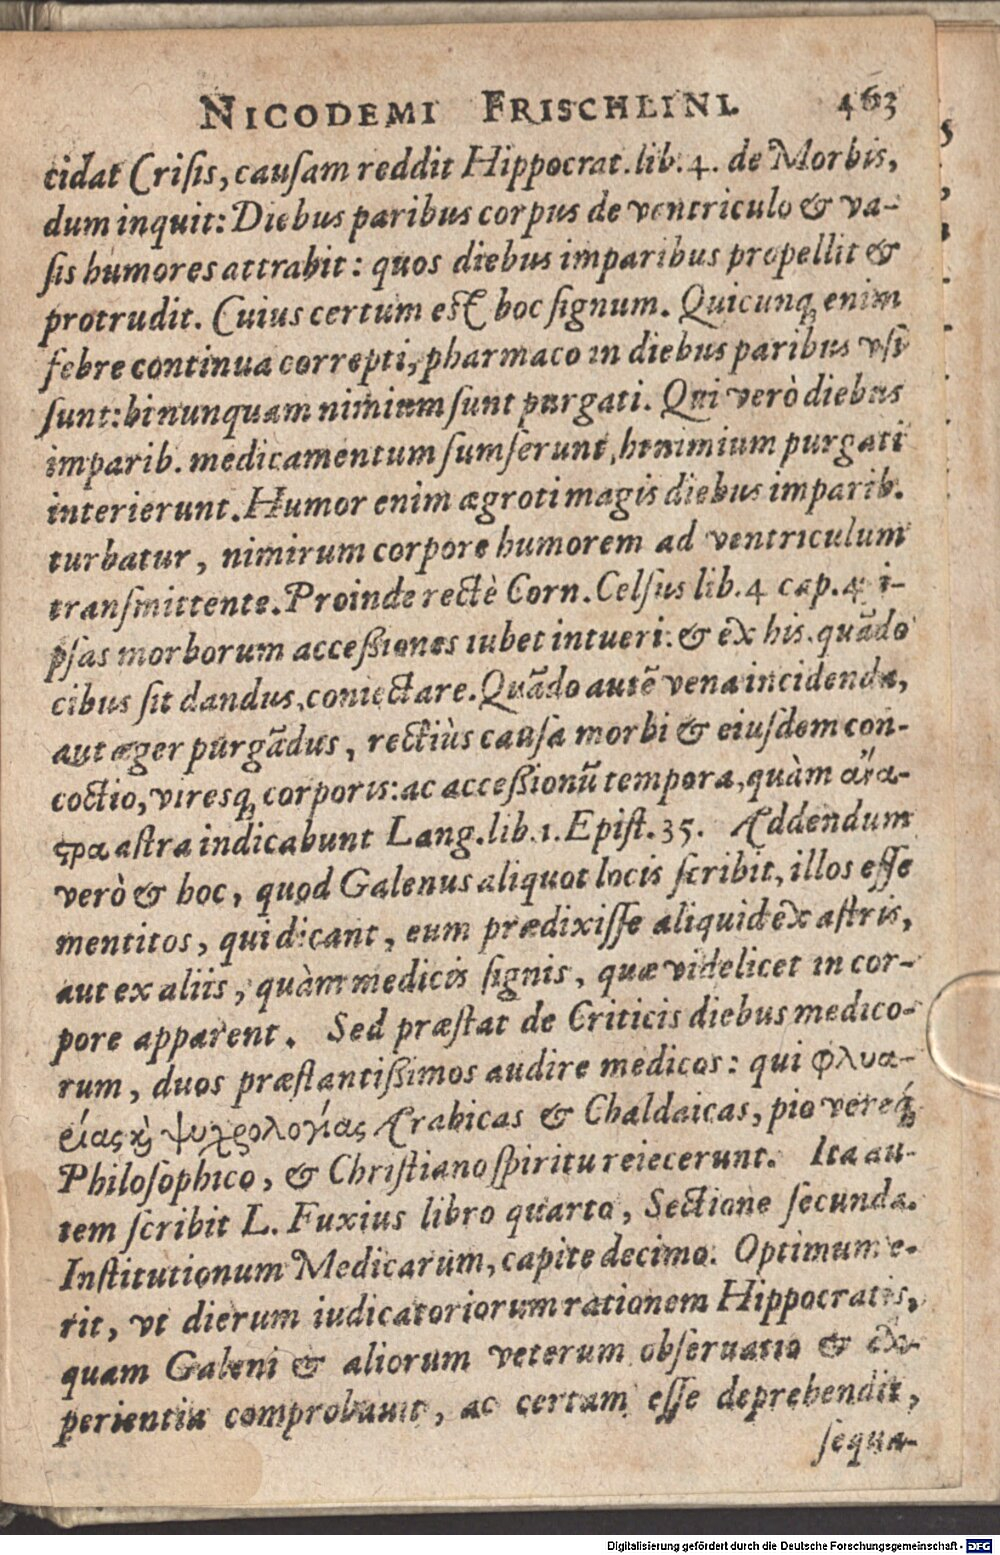 NICODEMI FRISCHLINI. 463
cidat Crisis, causam reddit Hippocrat. lib. 4. de Morbis,
dum inquit: Diebus paribus corpus de ventriculo & va-
sis humores attrahit: quos diebus imparibus propellit &
protrudit. Cuius certum est hoc signum. Quicunq; enim
febre continua correpti, pharmaco in diebus paribus vsi
sunt: hi nunquam nimium sunt purgati. Qui verò diebus
imparib. medicamentum sumserunt, hi nimium purgati
interierunt. Humor enim ægroti magis diebus imparib.
turbatur, nimirum corpore humorem ad ventriculum
transmittente. Proinde rectè Corn. Celsus lib. 4 cap. 4. i-
psas morborum accessiones iubet intueri: & ex his, quãdo
cibus sit dandus, coniectare. Quãdo autẽ vena incidenda,
aut æger purgãdus, rectiùs causa morbi & eiusdem con-
coctio, viresq; corporis: ac accessionũ tempora, quàm ἄνα-
ϛρα astra indicabunt Lang. lib. 1. Epist. 35. Addendum
verò & hoc, quod Galenus aliquot locis scribit, illos esse
mentitos, qui dicant, eum prædixisse aliquid ex astris,
aut ex aliis, quàm medicis signis, quæ videlicet in cor-
pore apparent. Sed præstat de Criticis diebus medico-
rum, duos præstantissimos audire medicos: qui φλυα-
ρίας ϗ ψυχρολογίας Arabicas & Chaldaicas, pio vereq́;
Philosophico, & Christiano spiritu reiecerunt. Ita au-
tem scribit L. Fuxius libro quarto, Sectione secunda.
Institutionum Medicarum, capite decimo. Optimum e-
rit, vt dierum iudicatoriorum rationem Hippocratis,
quam Galeni & aliorum veterum obseruatio & ex-
perientia comprobauit, ac certam esse deprehendit,
sequa-
Digitalisierung gefördert durch die Deutsche Forschungsgemeinschaft - DFG